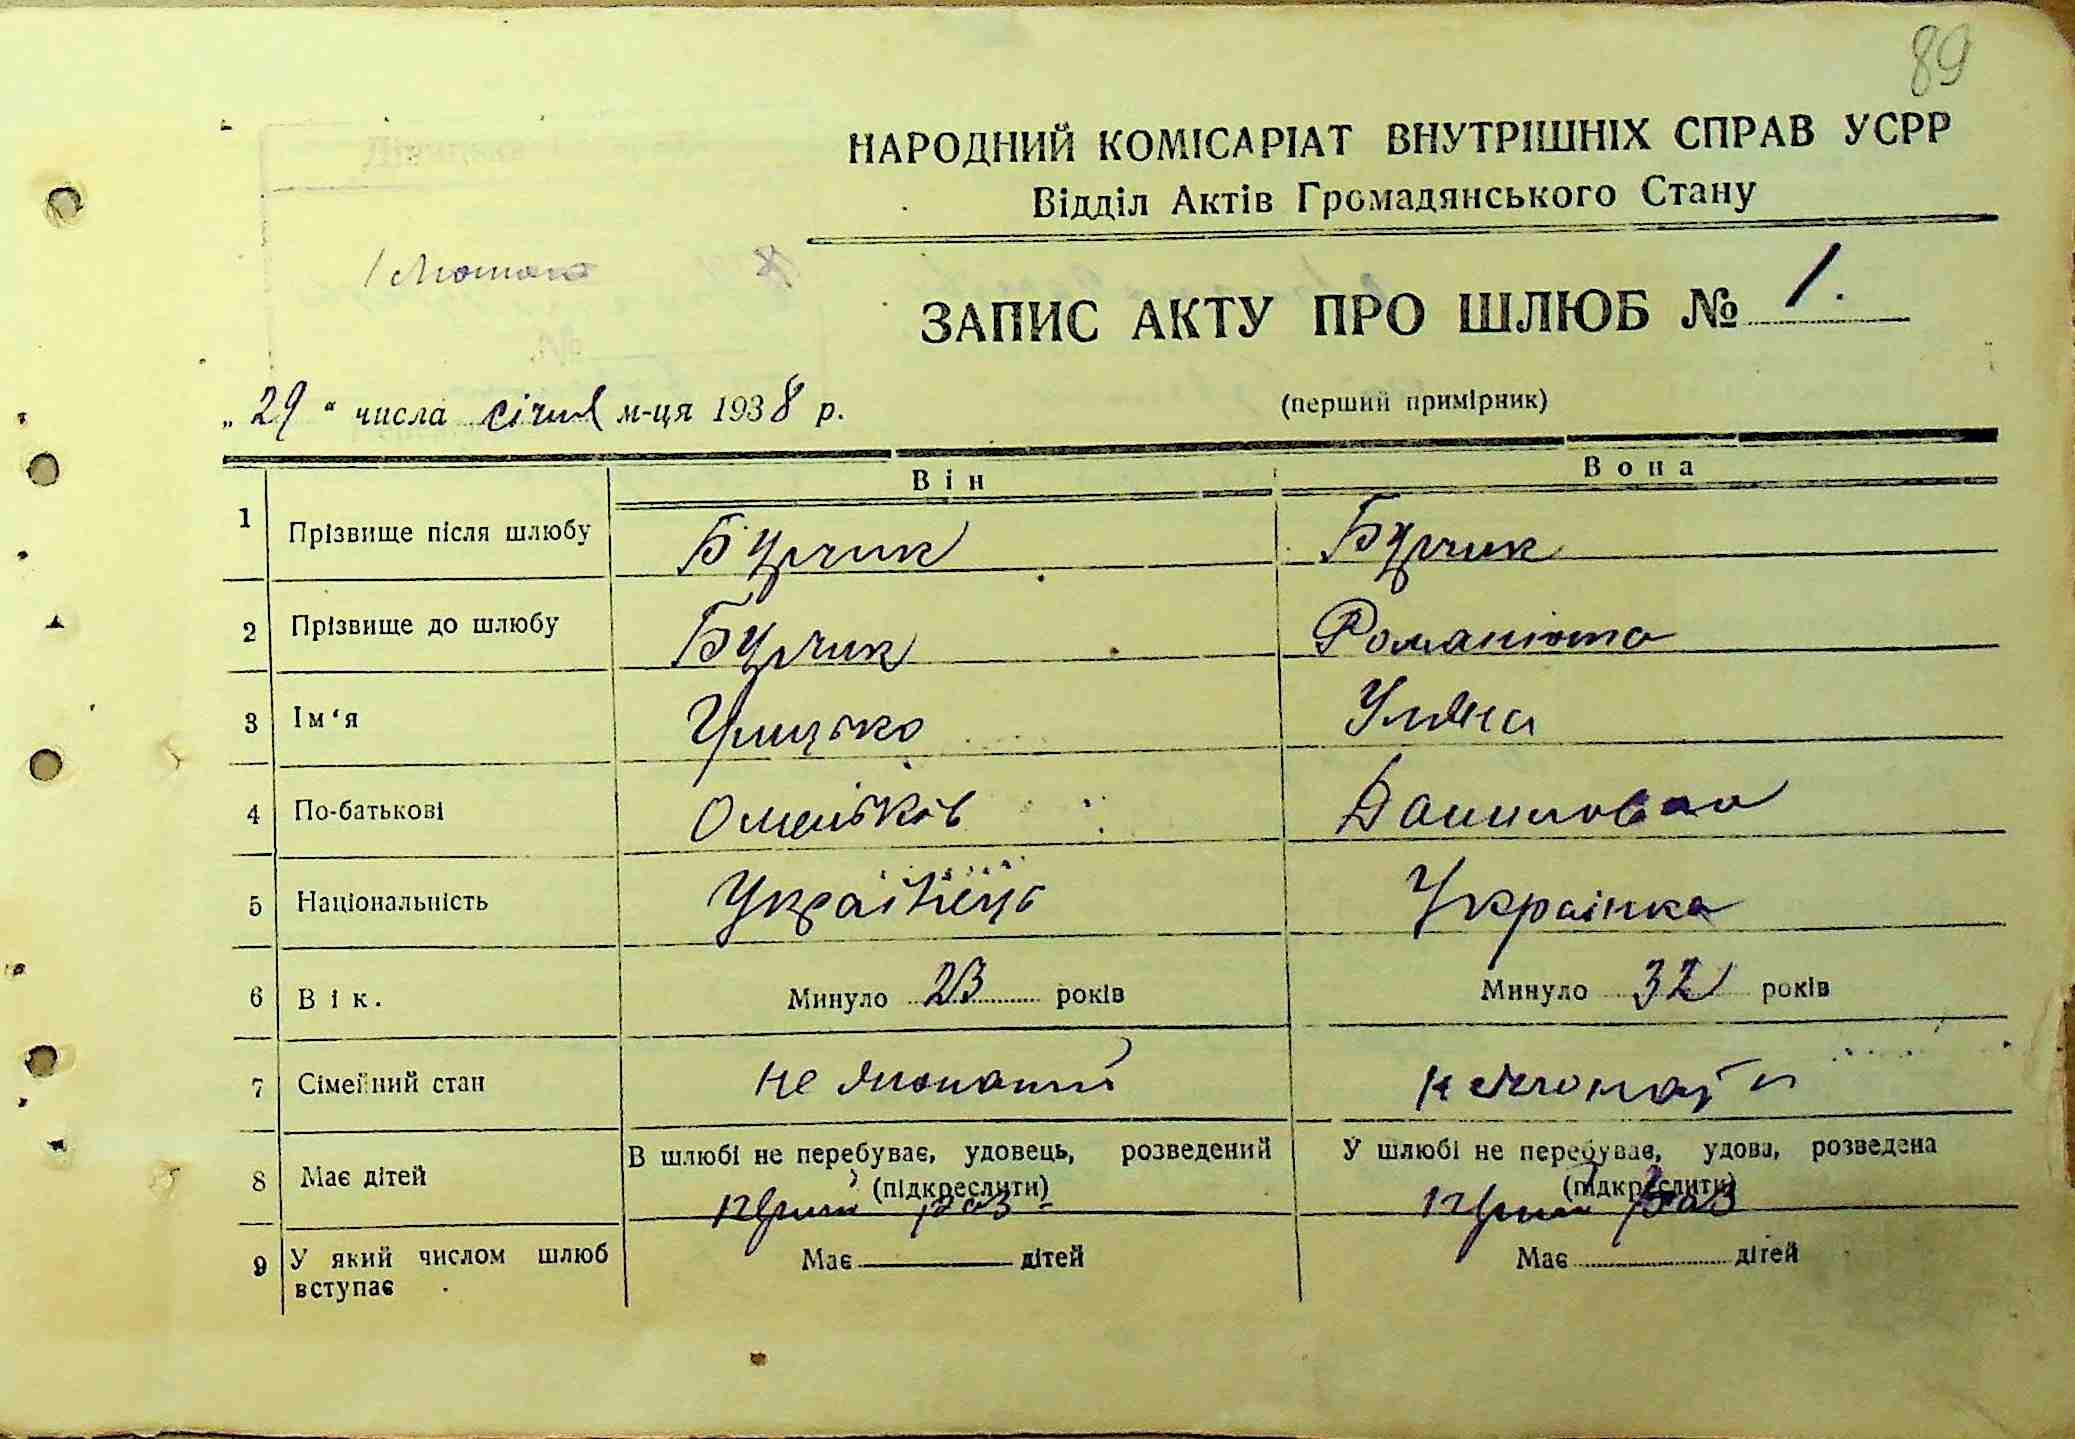 89
НАРОДНИЙ КОМІСАРІАТ ВНУТРІШНІХ СПРАВ УСРР
Відділ Актів Громадянського Стану
ЗАПИС АКТУ ПРО ШЛЮБ № 1.
„29“ числа січня м-ця 1938 р.
(перший примірник)
Він Вона
1 Прізвище після шлюбу Бурчик Бурчик
2 Прізвище до шлюбу Бурчик Романюта
3 Ім‘я Грицько Уляна
4 По-батькові Омельков Даниловна
5 Національність Українець Українка
6 Вік. Минуло 23 років Минуло 32 років
7 Сімейний стан не
8 Має дітей В шлюбі не перебуває, удовець, розведений У шлюбі не перебуває, удова, розведена
(підкреслити) (підкреслити)
раз раз
9 У який числом шлюб Має дітей Має дітей
вступає